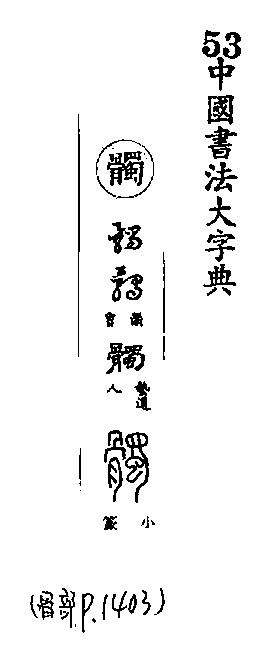 53
中國書法大字典
髑
髑
髑
漢曹
髑
藝道人
髑
小篆
(骨部P.1403)